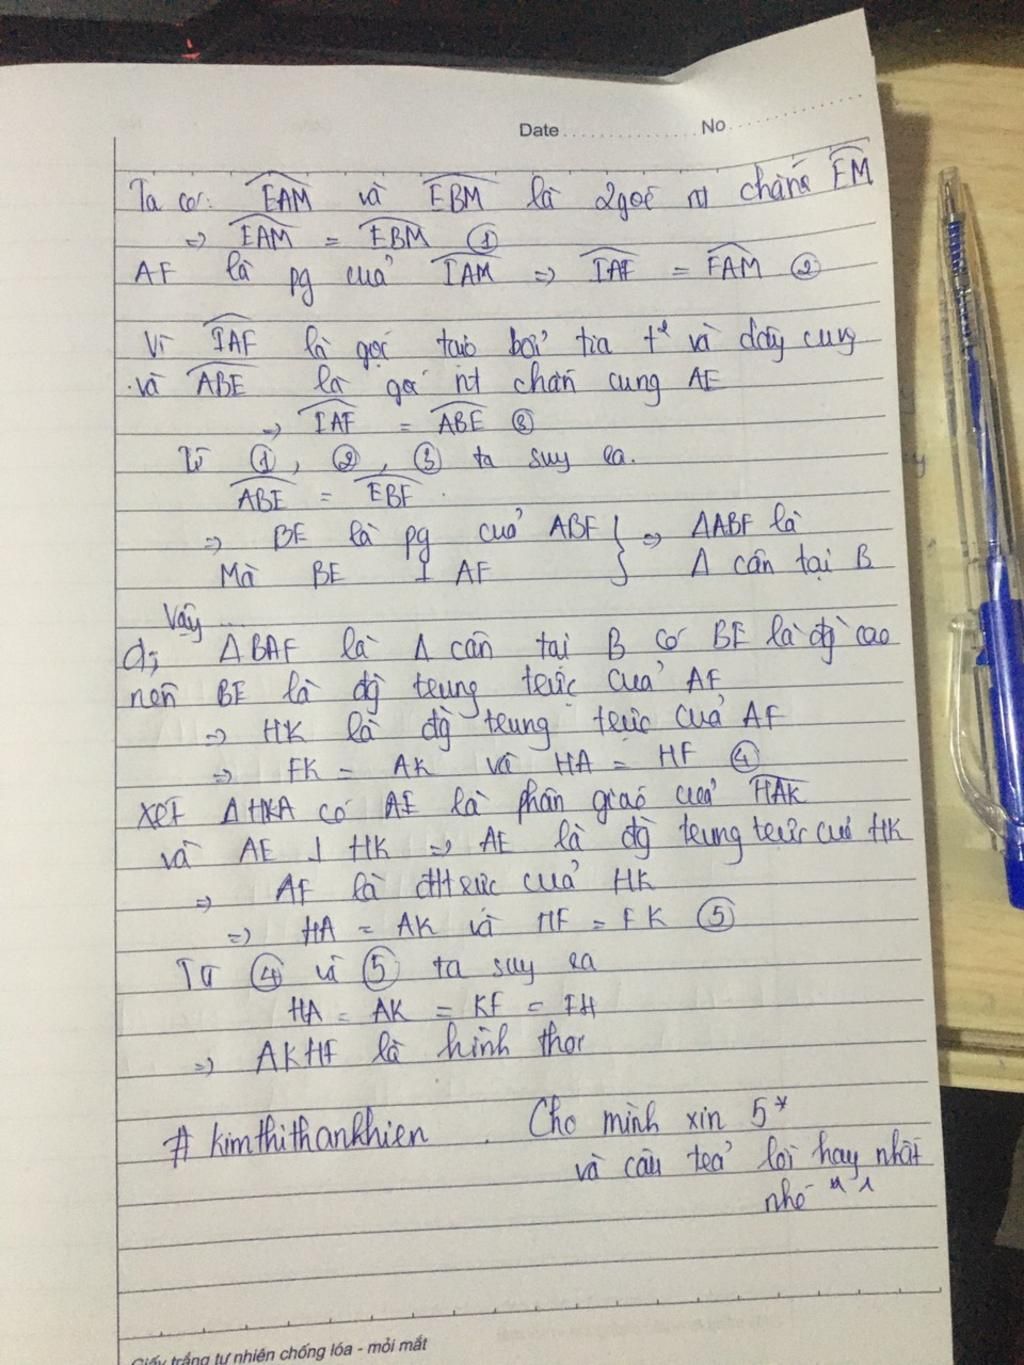 Date.................... No....................
Ta có: EAM và EBM là 2 góc nt chắn EM
=> EAM = EBM ①
AF là pg của IAM => IAF = FAM ②
Vì IAF là góc tạo bởi tia t² và dây cung
và ABE là góc nt chắn cung AE
=> IAF = ABE ③
Từ ①, ②, ③ ta suy ra.
ABE = EBF.
=> BE là pg của ABF } => ΔABF là
Mà BE ⊥ AF } Δ cân tại B
Vậy ...
d; ΔBAF là Δ cân tại B có BE là đg cao
nên BE là đg trung trực của AF
=> HK là đg trung trực của AF
=> FK = AK và HA = HF ④
Xét ΔHKA có AE là phân giác của HAK
và AE ⊥ HK => AE là đg trung trực của HK
=> AF là đttrực của HK
=> HA = AK và HF = FK ⑤
Từ ④ và ⑤ ta suy ra
HA = AK = KF = FH
=> AKHF là hình thoi
# kimthithankhien . Cho mình xin 5*
và câu trả lời hay nhất
nhé ^^
Giấy trắng tự nhiên chống lóa - mỏi mắt